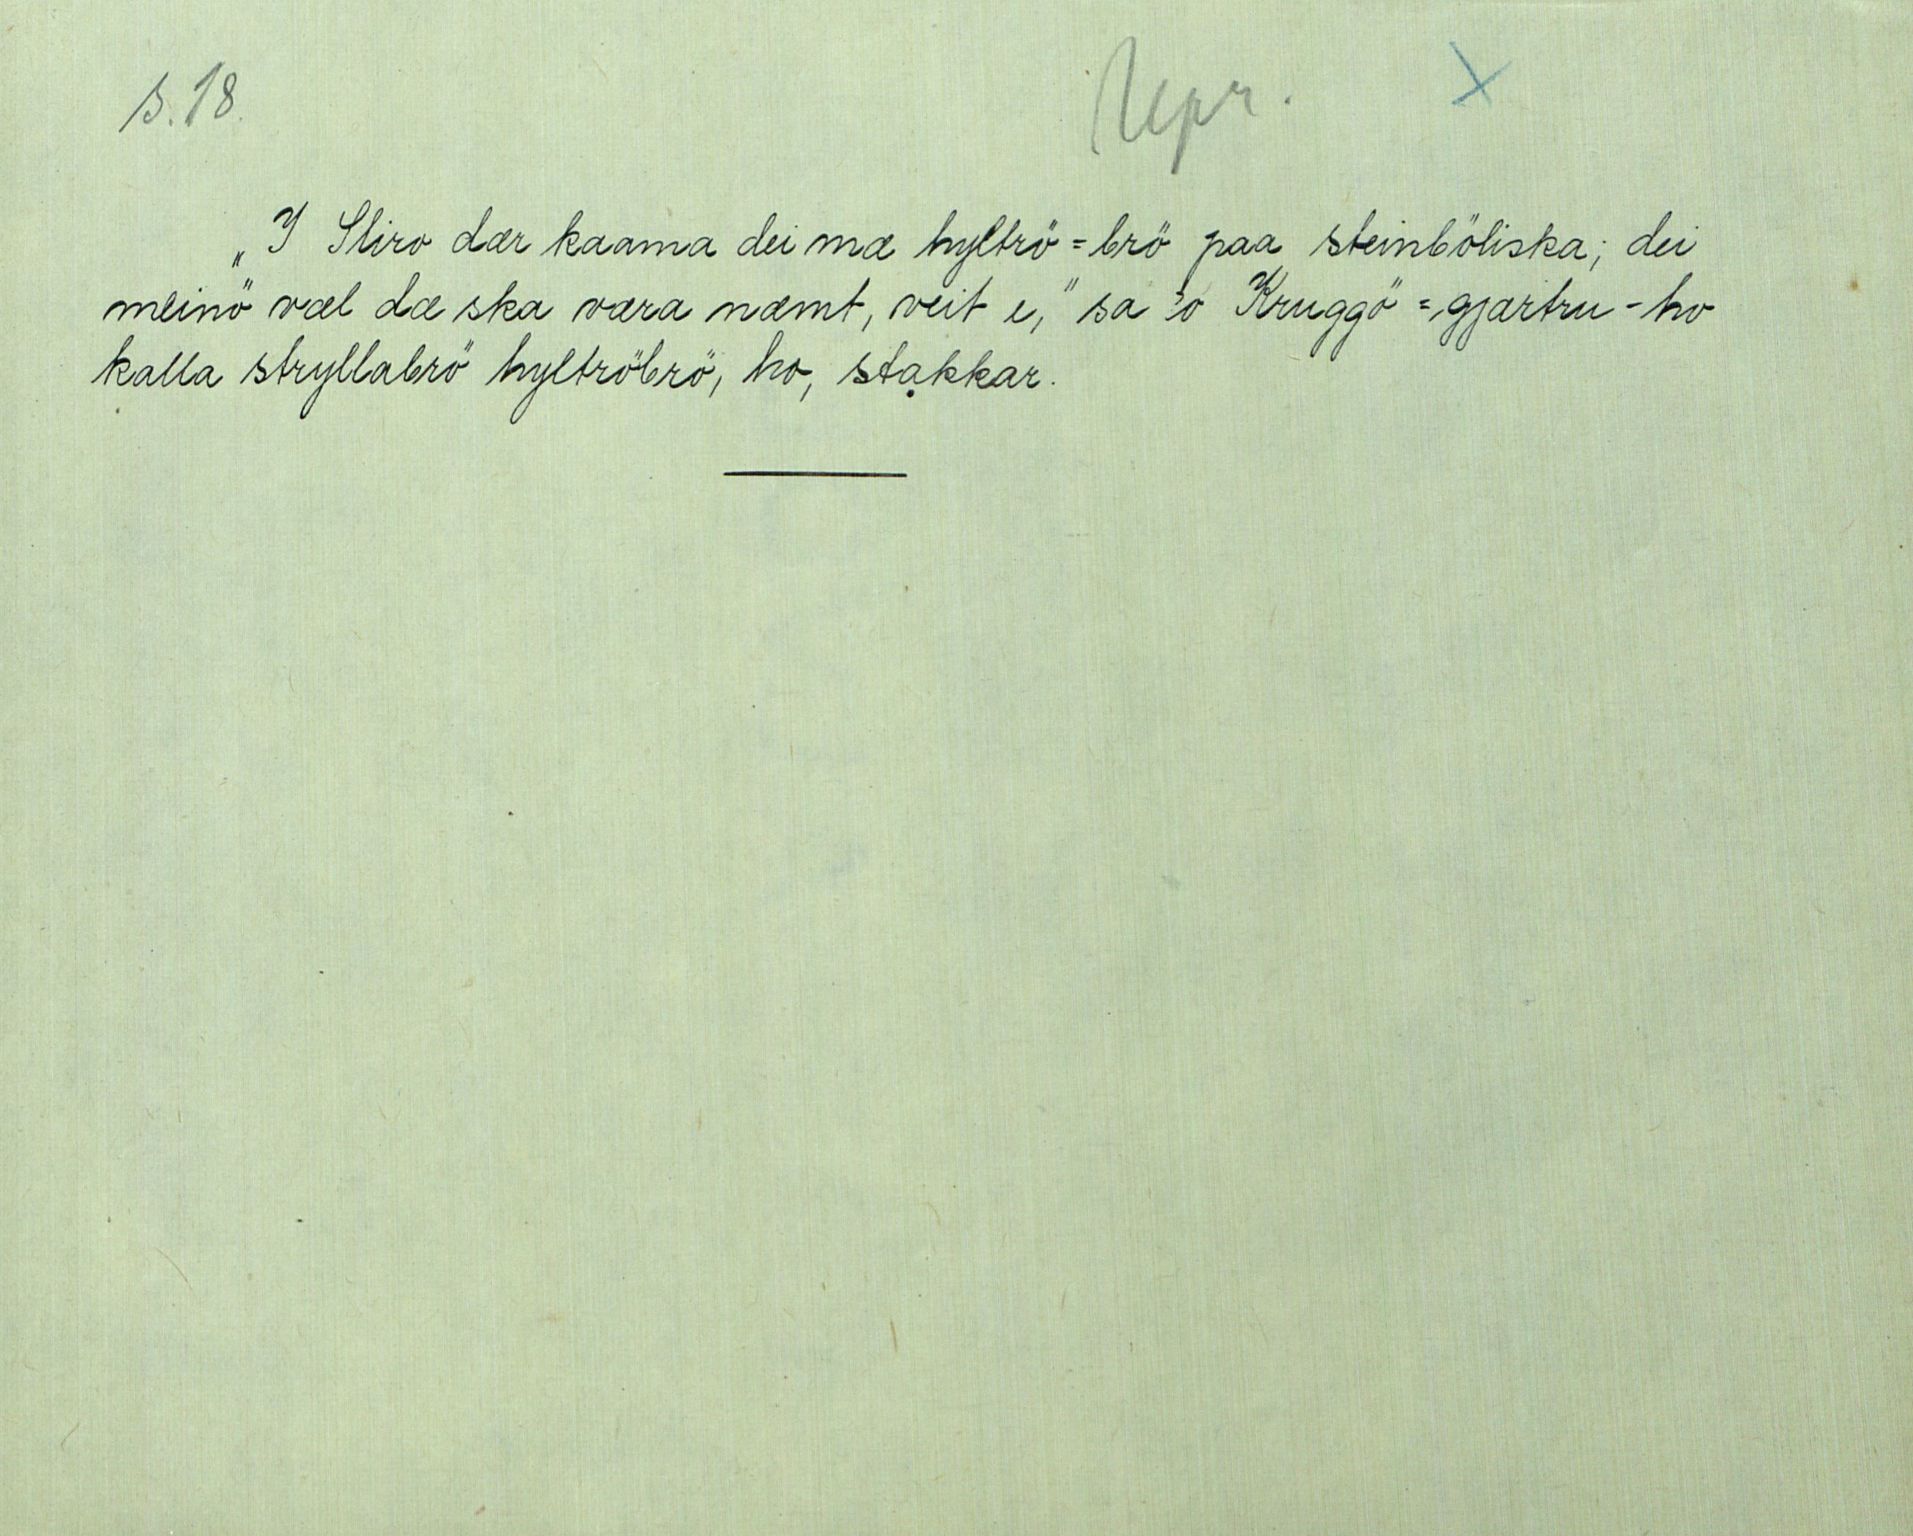 s. 18.
Repr. X
„I Sliro dær kaama dei mæ hyltrö=brö paa steinböliska; dei
meinö væl dæ ska væra næmt, veit e," sa 'o Kruggö=gjærtru - ho
kalla stryllabrö hyltröbrö, ho, stakkar.